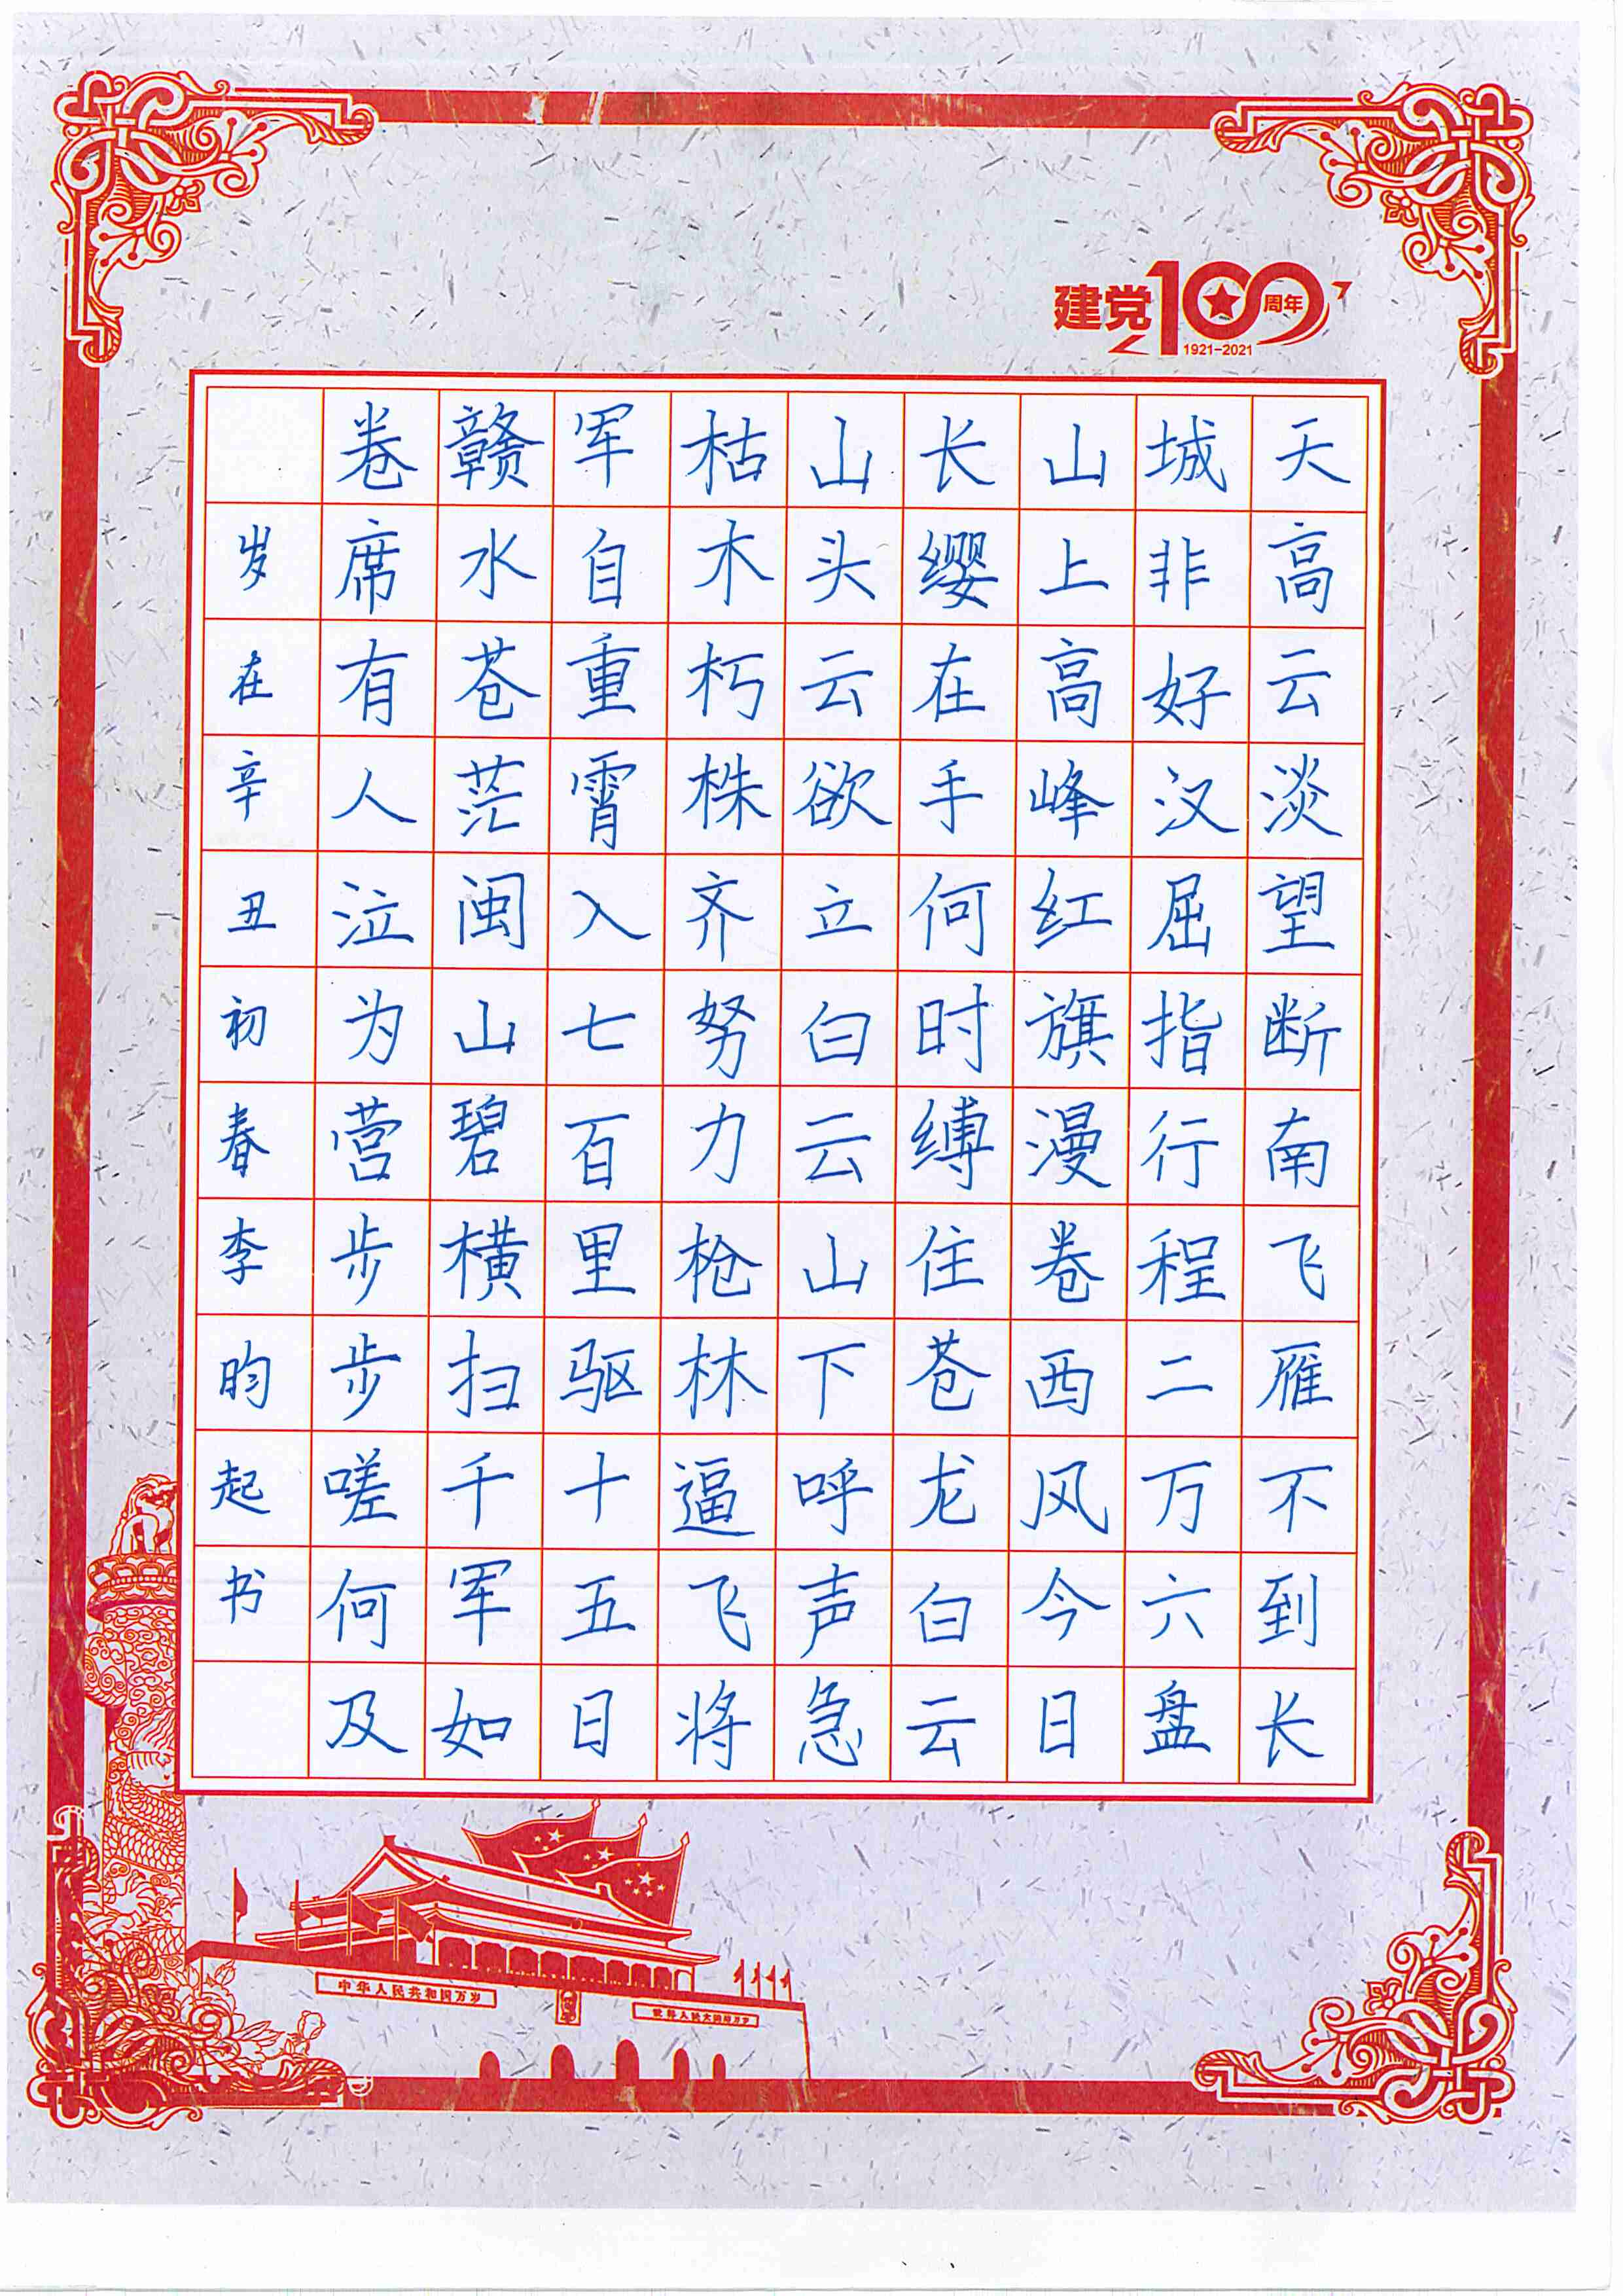 建党100周年
1921-2021
天高云淡望断南飞雁不到长
城非好汉屈指行程二万六盘
山上高峰红旗漫卷西风今日
长缨在手何时缚住苍龙白云
山头云欲立白云山下呼声急
枯木朽株齐努力枪林逼飞将
军自重霄入七百里驱十五日
赣水苍茫闽山碧横扫千军如
卷席有人泣为营步步嗟何及
岁在辛丑初春李昀起书
中华人民共和国万岁